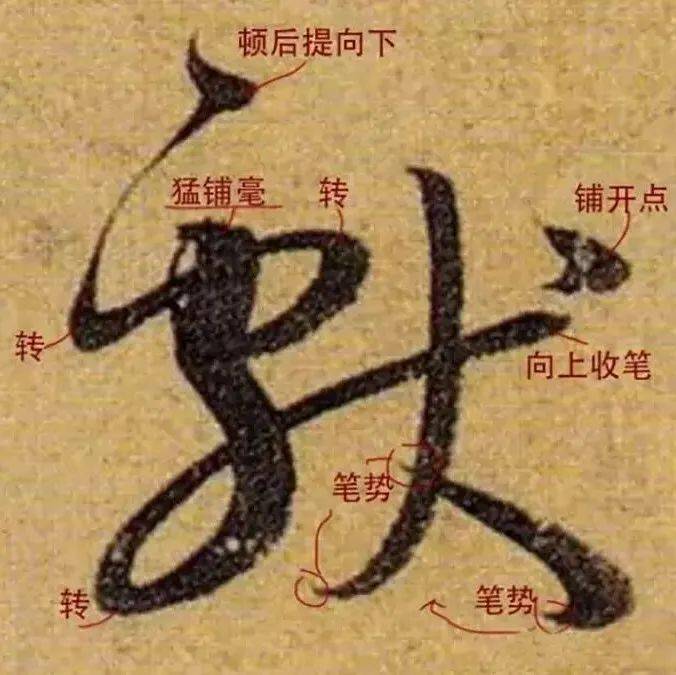 顿后提向下
猛铺毫 转 铺开点
转 向上收笔
笔势
转 笔势